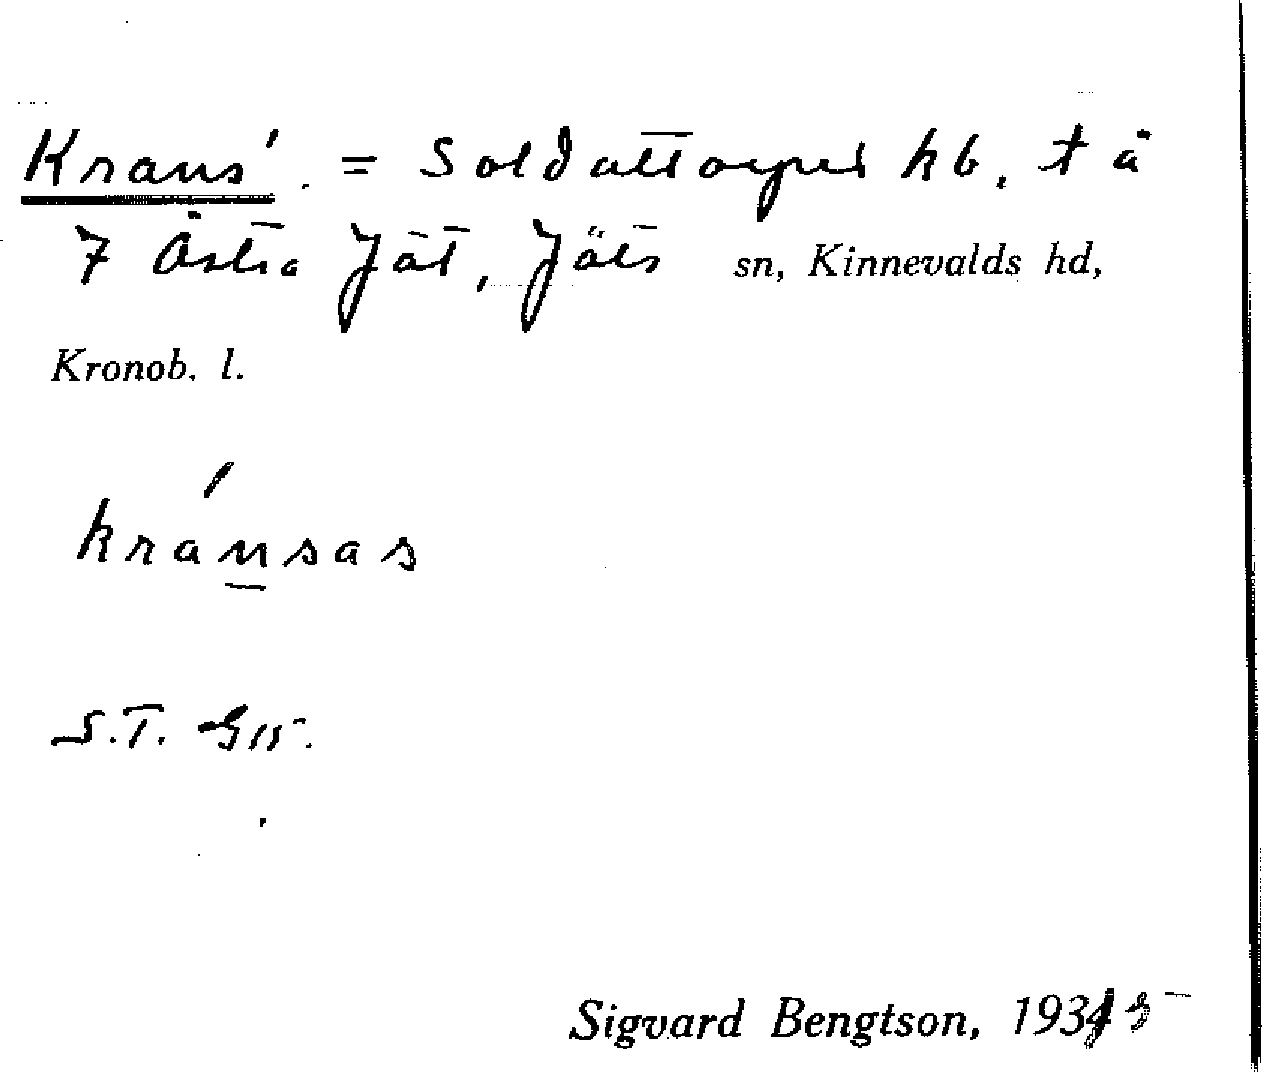 Krans'. = Soldattorpet hb, t å
7 Östra Jät, Jäts sn, Kinnevalds hd,
Kronob. l.
kransas
S.T.
Sigvard Bengtson, 1935